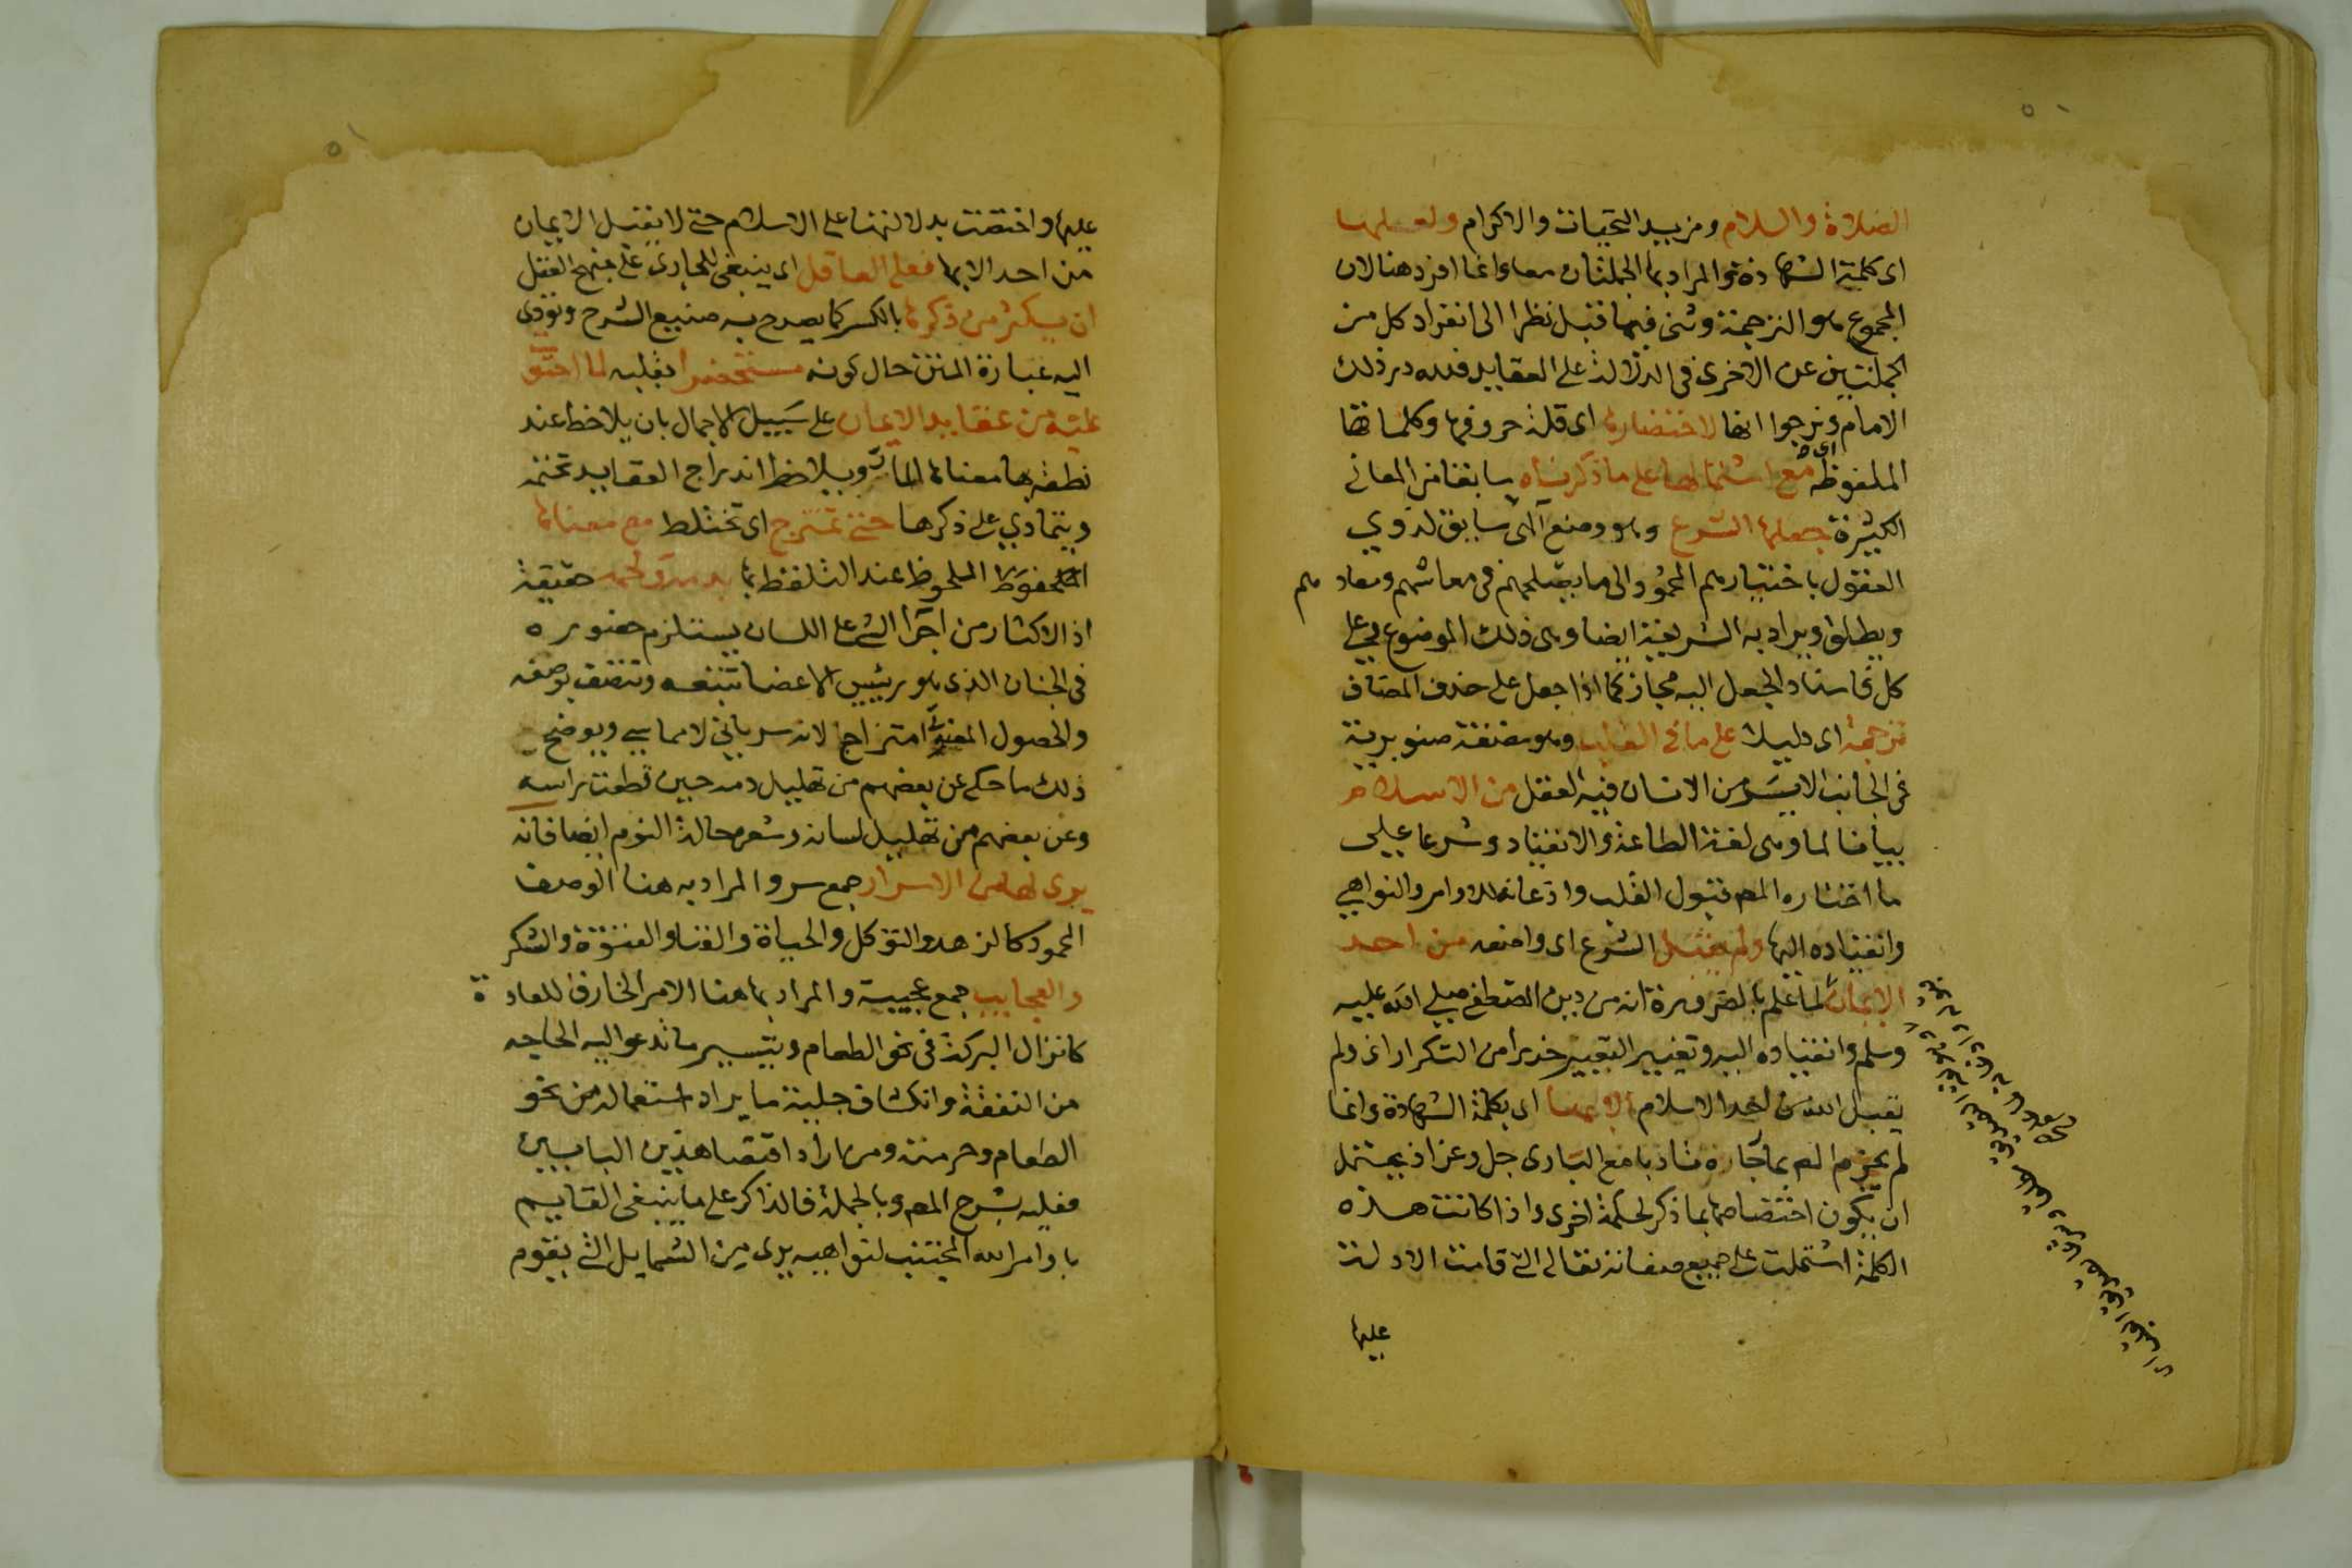 الصلاة والسلام ومزيد التحيات والاكرام ولعلها
اى كلمة الشهادة والمراد بها الجملتان معا وانما افرد هنا لان
المجموع هو الترجمة وثنى فيما قبل نظرا الى انفراد كل من
الجملتين عن الاخرى فى الدلالة على العقايد فلله در ذلك
الامام ونرجوا انها لاختصارها اى قلة حروفها وكلماتها
الملفوظة اى مع اشتمالها على ما ذكرناه سابقا من المعانى
الكثيرة جعلها الشرع وهو وضع آلهى سابق لذوي
العقول باختيارهم المحمود الى ما يصلحهم فى معاشهم ومعادهم
ويطلق ويراد به الشريعة ايضا وهى ذلك الموضوع
كل فاسناد الجعل اليه مجاز كما اذا جعل على حذف المضاف
ترجمة اى دليلا على ما فى القلب وهو مضغة صنوبرية
فى الجانب الايسر من الانسان فيه العقل من الاسلام
بيانا لما وهى لغة الطاعة والانقياد وشرعا على
ما اختاره المص قبول القلب واذعانه للاوامر والنواهي
وانقياده اليها ولم يقبل الشرع اى واضعه من احد
الايمان لما علم بالضرورة انه من دين المصطفى صلى الله عليه
وسلم وانقياده اليه وتغيير التعبير حذرا من التكرار اى ولم
يقبل الله من احد الاسلام الا بها اى بكلمة الشهادة وانما
لم يجزم المص بما تأدبا مع البارى جل وعز اذ يحتمل
ان يكون اختصاصها بما ذكر لحكمة اخرى واذا كانت هذه
الكلمة اشتملت على جميع صفاته تعالى التى قامت الادلة
عليها
عليها واختصت بدلالتها على الاسلام حتى لا يقبل الايمان
من احد الا بها فعلى العاقل اى ينبغى للجارى على منهج العقل
ان يكثر من ذكرها بالكسر كما يصرح به صنيع الشرح وتؤدى
اليه عبارة المتن حال كونه مستحضرا بقلبه لما احتوت
عليه من عقايد الايمان على سبيل الاجمال بان يلاحظ عند
نطقه بها معناها المار ويلاحظ اندراج العقايد تحته
ويتمادي على ذكرها حتى تمتزج اى تختلط مع معناها
الملحوظ عند التلفظ بها بدمه ولحمه حقيقة
اذ الاكثار من اجرا الشى على اللسان يستلزم حضوره
فى الجنان الذى هو رييس الاعضا تتبعه وتتصف بوصفه
والحصول المعنوى امتزاج لانه سرياني لا مماسي ويوضح
ذلك ما حكي عن بعضهم من تهليل دمه حين قطعت راسه
وعن بعضهم من تهليل لسانه وشعره حالة النوم ايضا فانه
يرى لها من الاسرار جمع سر والمراد به هنا الوصف
المحمود كالزهد والتوكل والحياة والغنا والفتوة والشكر
والعجايب جمع عجيبة والمراد بها هنا الامر الخارق للعادة
كانزال البركة فى نحو الطعام وتيسير ما تدعو اليه الحاجه
من النفقة وانكشاف جلية ما يراد استعماله من نحو
الطعام وحرمته ومن اراد اقتصا هذين البابين
فعليه بشرح المص وبالجملة فالذاكر على ما ينبغى القايم
باوامر الله المجتنب لنواهيه يرى من الشمايل التى يقوم